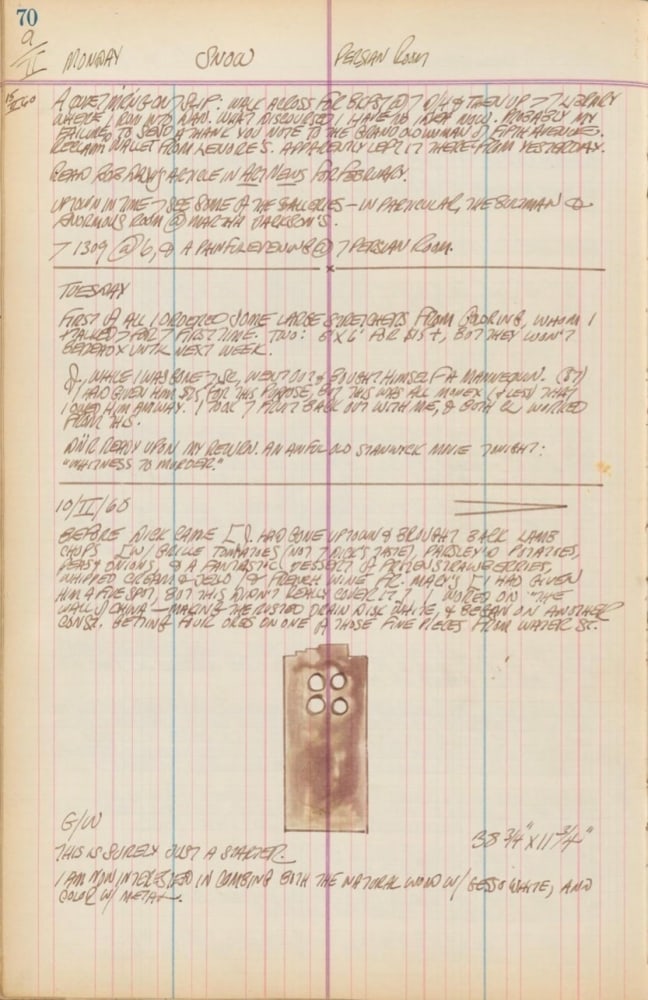 70
9/II MONDAY SNOW PERSIAN ROOM
15/II/60 A QUIET MORNING ON SLIP: WALK ACROSS FOR BKFST @ 7 & THEN UP → 7 LIBRARY
WHERE I RUN INTO ALAN. WHAT DISCOURSED I HAVE NO IDEA NOW. PROBABLY MY
FAILURE TO SEND A THANK YOU NOTE TO THE GRAND OLD WOMAN OF FIFTH AVENUE.
RECLAIM WALLET FROM LENORE'S. APPARENTLY LEFT IT THERE FROM YESTERDAY.
READ ROB ARTICLE IN ART NEWS FOR FEBRUARY.
UPTOWN IN TIME → SEE SOME OF THE GALLERIES – IN PARTICULAR, THE SUZMAN &
ENORMOUS ROOM @ MARTHA JACKSON'S.
→ 1309 @ 6, & A PAINFUL EVENING @ 7 PERSIAN ROOM.
x
TUESDAY
FIRST OF ALL I ORDERED SOME LARGE STRETCHERS FROM GOLDRING, WHOM I
TALKED → FOR 7 FIRST TIME. TWO: 6'X6' FOR $15 +, BUT THEY WON'T
BE READY UNTIL NEXT WEEK.
J, WHILE I WAS GONE → SC, WENT OUT & BOUGHT HIMSELF A MANNEQUIN. ($7)
I HAD GIVEN HIM $25 FOR THIS PURPOSE, BUT THIS WAS ALL MONEY (& LESS THAT)
I OWED HIM ANYWAY. I TOOK 7 FRUIT BACK OUT WITH ME, & BOTH WORKED
FROM THIS.
DNR READY UPON MY RETURN. AN AWFUL OLD STANWYCK MOVIE TONIGHT:
"WHITNESS TO MURDER."
10/II/60
BEFORE DICK CAME [J. HAD GONE UPTOWN & BROUGHT BACK LAMB
CHOPS [W/ GRILLE TOMATOES (NOT 7 DICK'S TASTE), PARSLEY'D POTATOES,
PEAS, ONIONS, & A FANTASTIC DESSERT OF FROZEN STRAWBERRIES,
WHIPPED CREAM & JELLO / & FRENCH WINE FR. MACY'S [I HAD GIVEN
HIM A FIVE SPOT, BUT THIS DIDN'T REALLY COVER IT.] I WORKED ON "THE
WALL OF CHINA" – MAKING THE RUSTED DRAIN DISK WHITE, & BEGAN ON ANOTHER
CONST. GETTING FOUR ORBS ON ONE OF THOSE FINE PIECES FROM WATER ST.
G/W
38 3/4" X 11 3/4"
THIS IS SURELY JUST A STARTER.
I AM NOW INTERESTED IN COMBING BOTH THE NATURAL WOOD W/ GESSO WHITE, AND
COLOR W/ METAL.